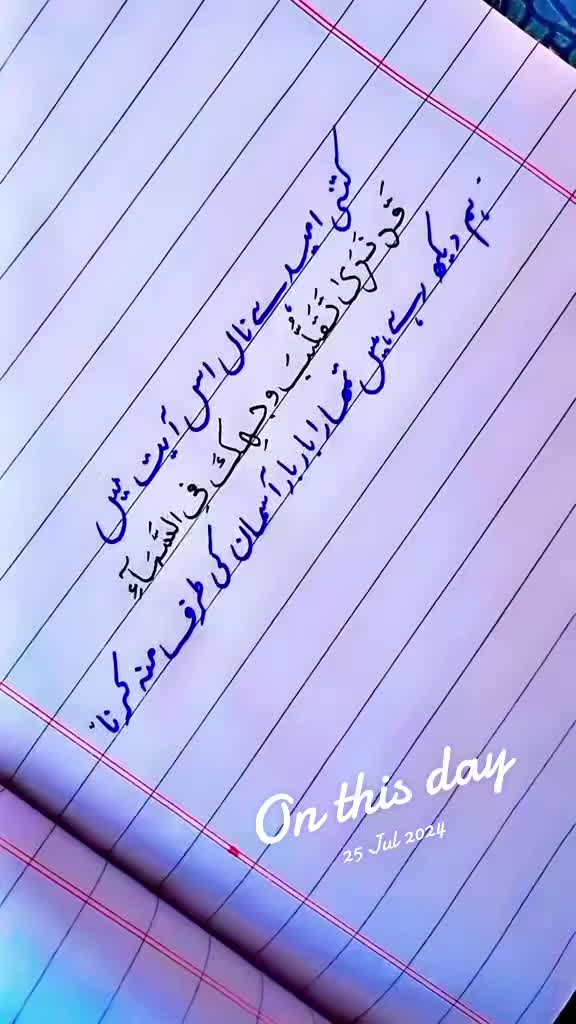 کتنی امید ہے ناں اس آیت میں
قَدْ نَرَىٰ تَقَلُّبَ وَجْهِكَ فِي السَّمَآءِ
"ہم دیکھ رہے ہیں تمھارا بار بار آسمان کی طرف منہ کرنا"
On this day
25 Jul 2024